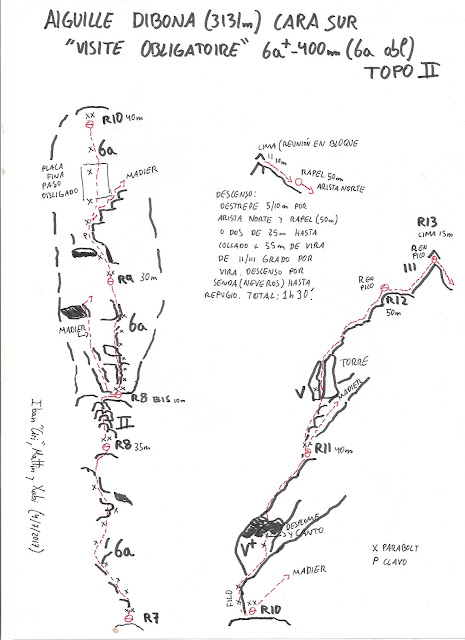 AIGUILLE DIBONA (3131m) CARA SUR
"VISITE OBLIGATOIRE" 6a+-400m (6a obl)
TOPO II
R10 40m
6a
PLACA
FINA
PASO
OBLIGADO
MADIER
P
R9 30m
6a
MADIER
R8 BIS 10m
II
R8 35m
6a
R7
Iban "Ori", Mattin y Xabi (4/7/2017)
CIMA (REUNIÓN EN BLOQUE
II 10m
RAPEL 50m
ARISTA NORTE
DESCENSO:
DESTREPE 5/10m POR
ARISTA NORTE Y RAPEL (50m)
O DOS DE 25m HASTA
COLLADO + 35m DE VIRA
DE II/III GRADO POR
VIRA. DESCENSO POR
SENDA (NEVEROS) HASTA
REFUGIO. TOTAL: 1h 30'.
R13
CIMA 15m
R EN
PICO
III
R EN
PICO
R12
50m
TORRE
V
MADIER
R11 40m
DESPLOME
Y CANTO
V+
X PARABOLT
P CLAVO
MADIER
FILO
R10